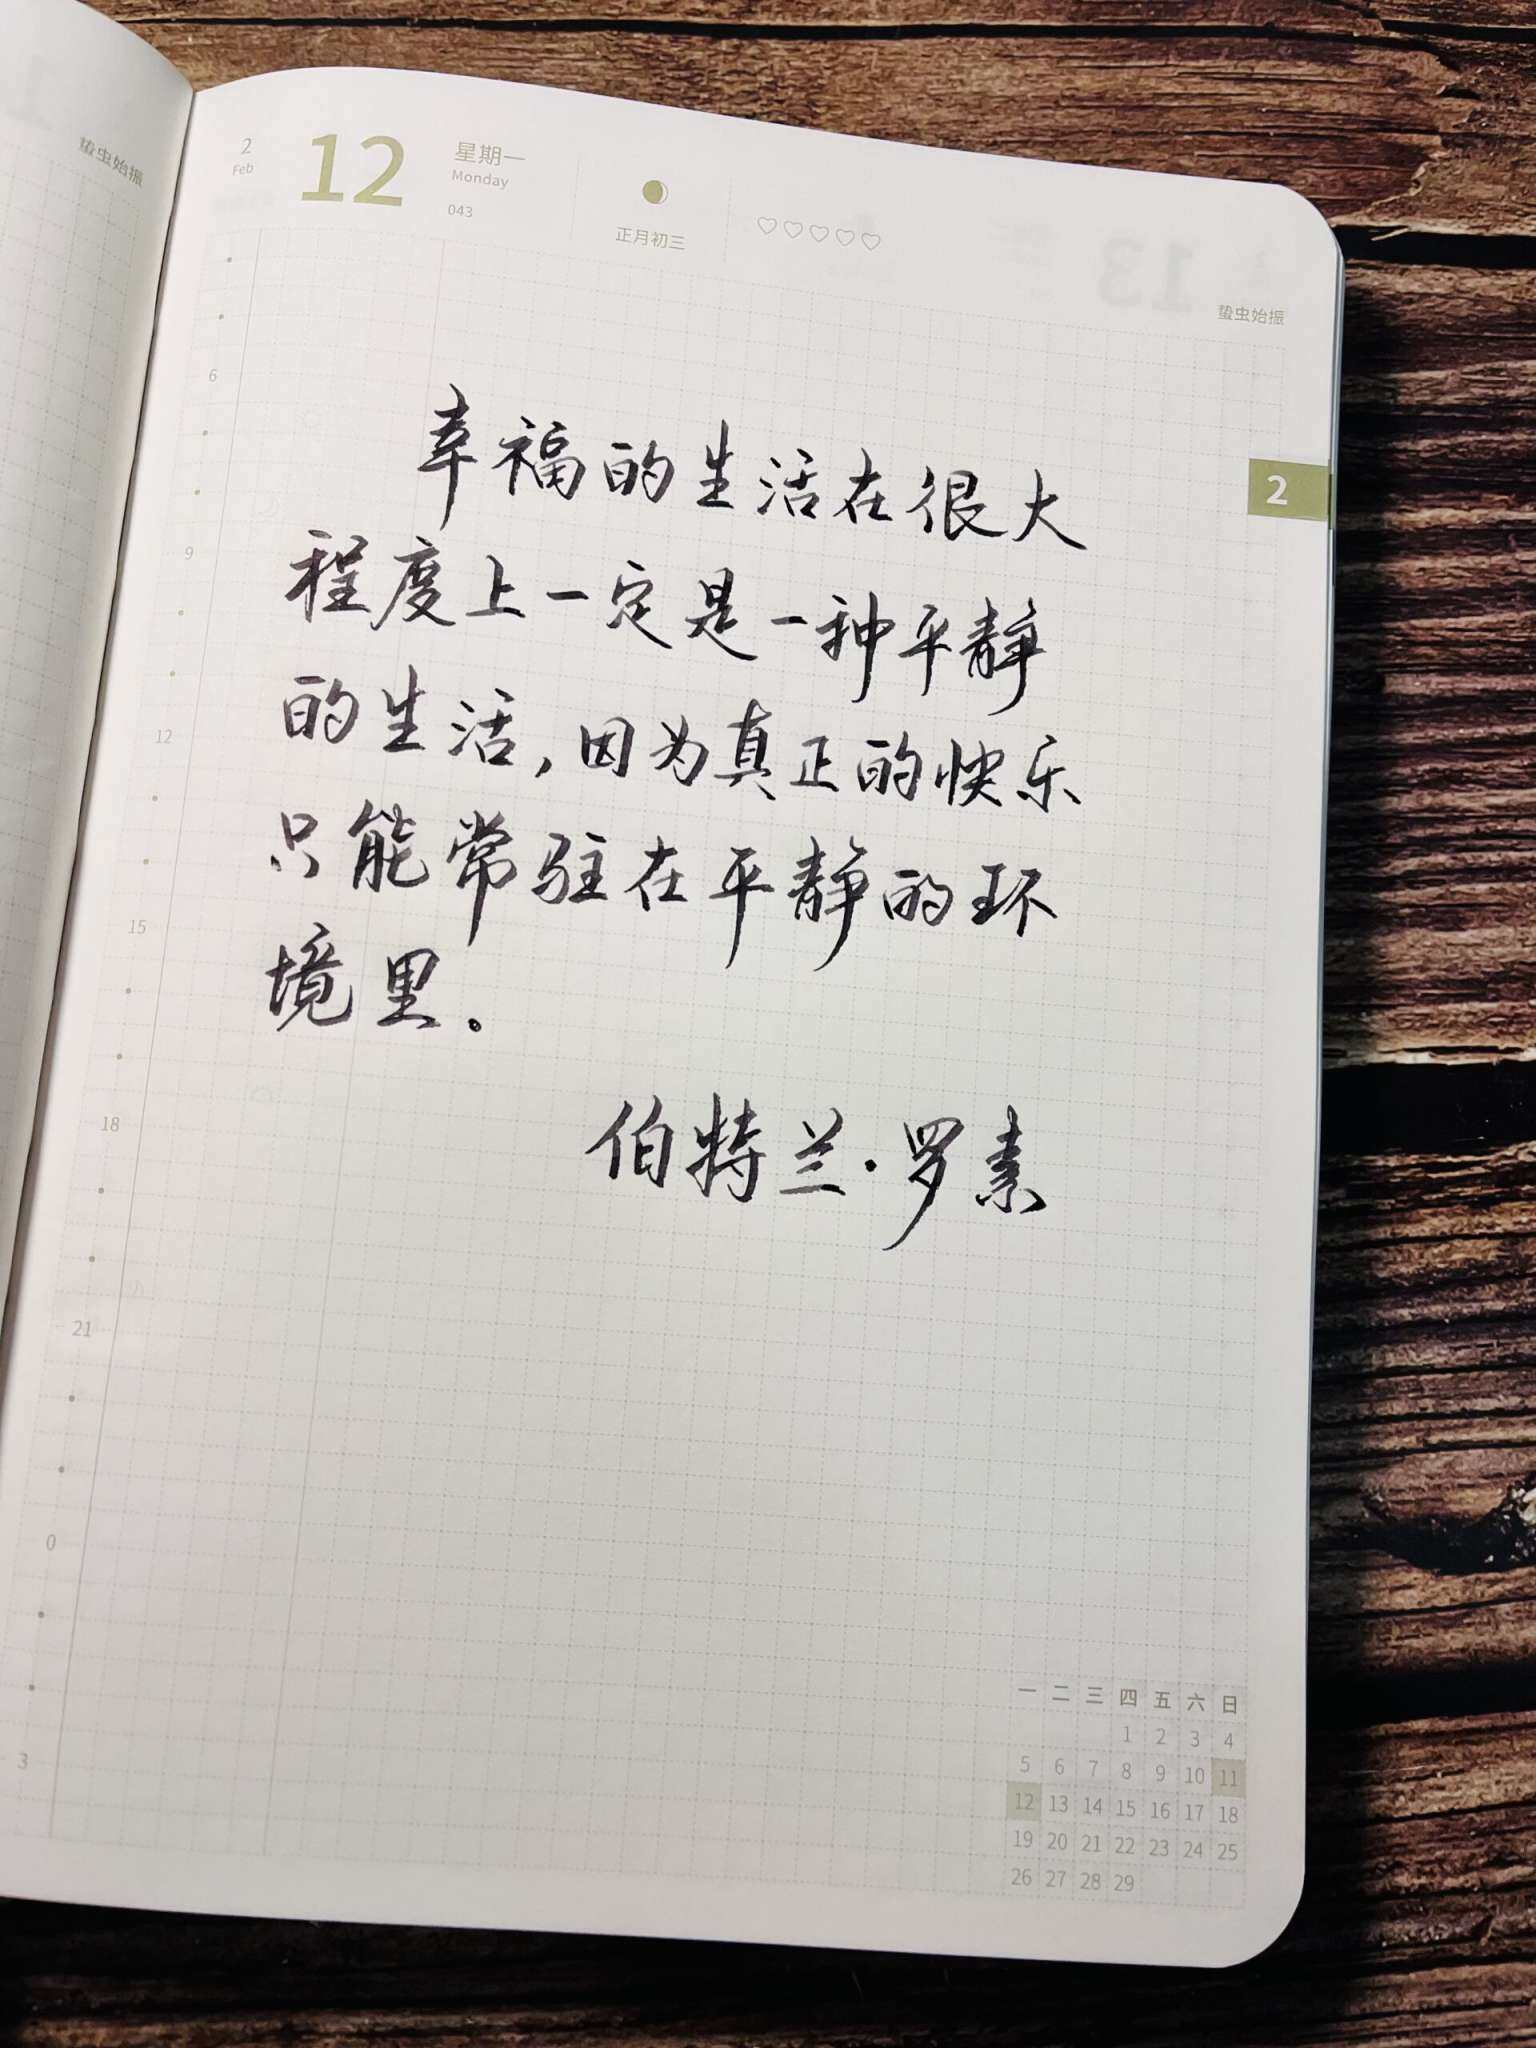 蛰虫始振
2
Feb
12
星期一
Monday
043
正月初三
蛰虫始振
13
2
6
9
12
15
18
21
0
3
幸福的生活在很大
程度上一定是一种平静
的生活,因为真正的快乐
只能常驻在平静的环
境里。
伯特兰·罗素
一 二 三 四 五 六 日
1 2 3 4
5 6 7 8 9 10 11
12 13 14 15 16 17 18
19 20 21 22 23 24 25
26 27 28 29